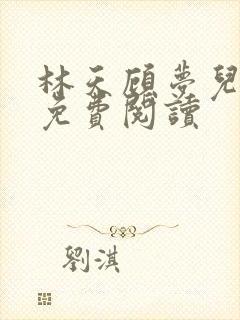 林天顧夢兒
免費閱讀
劉淇